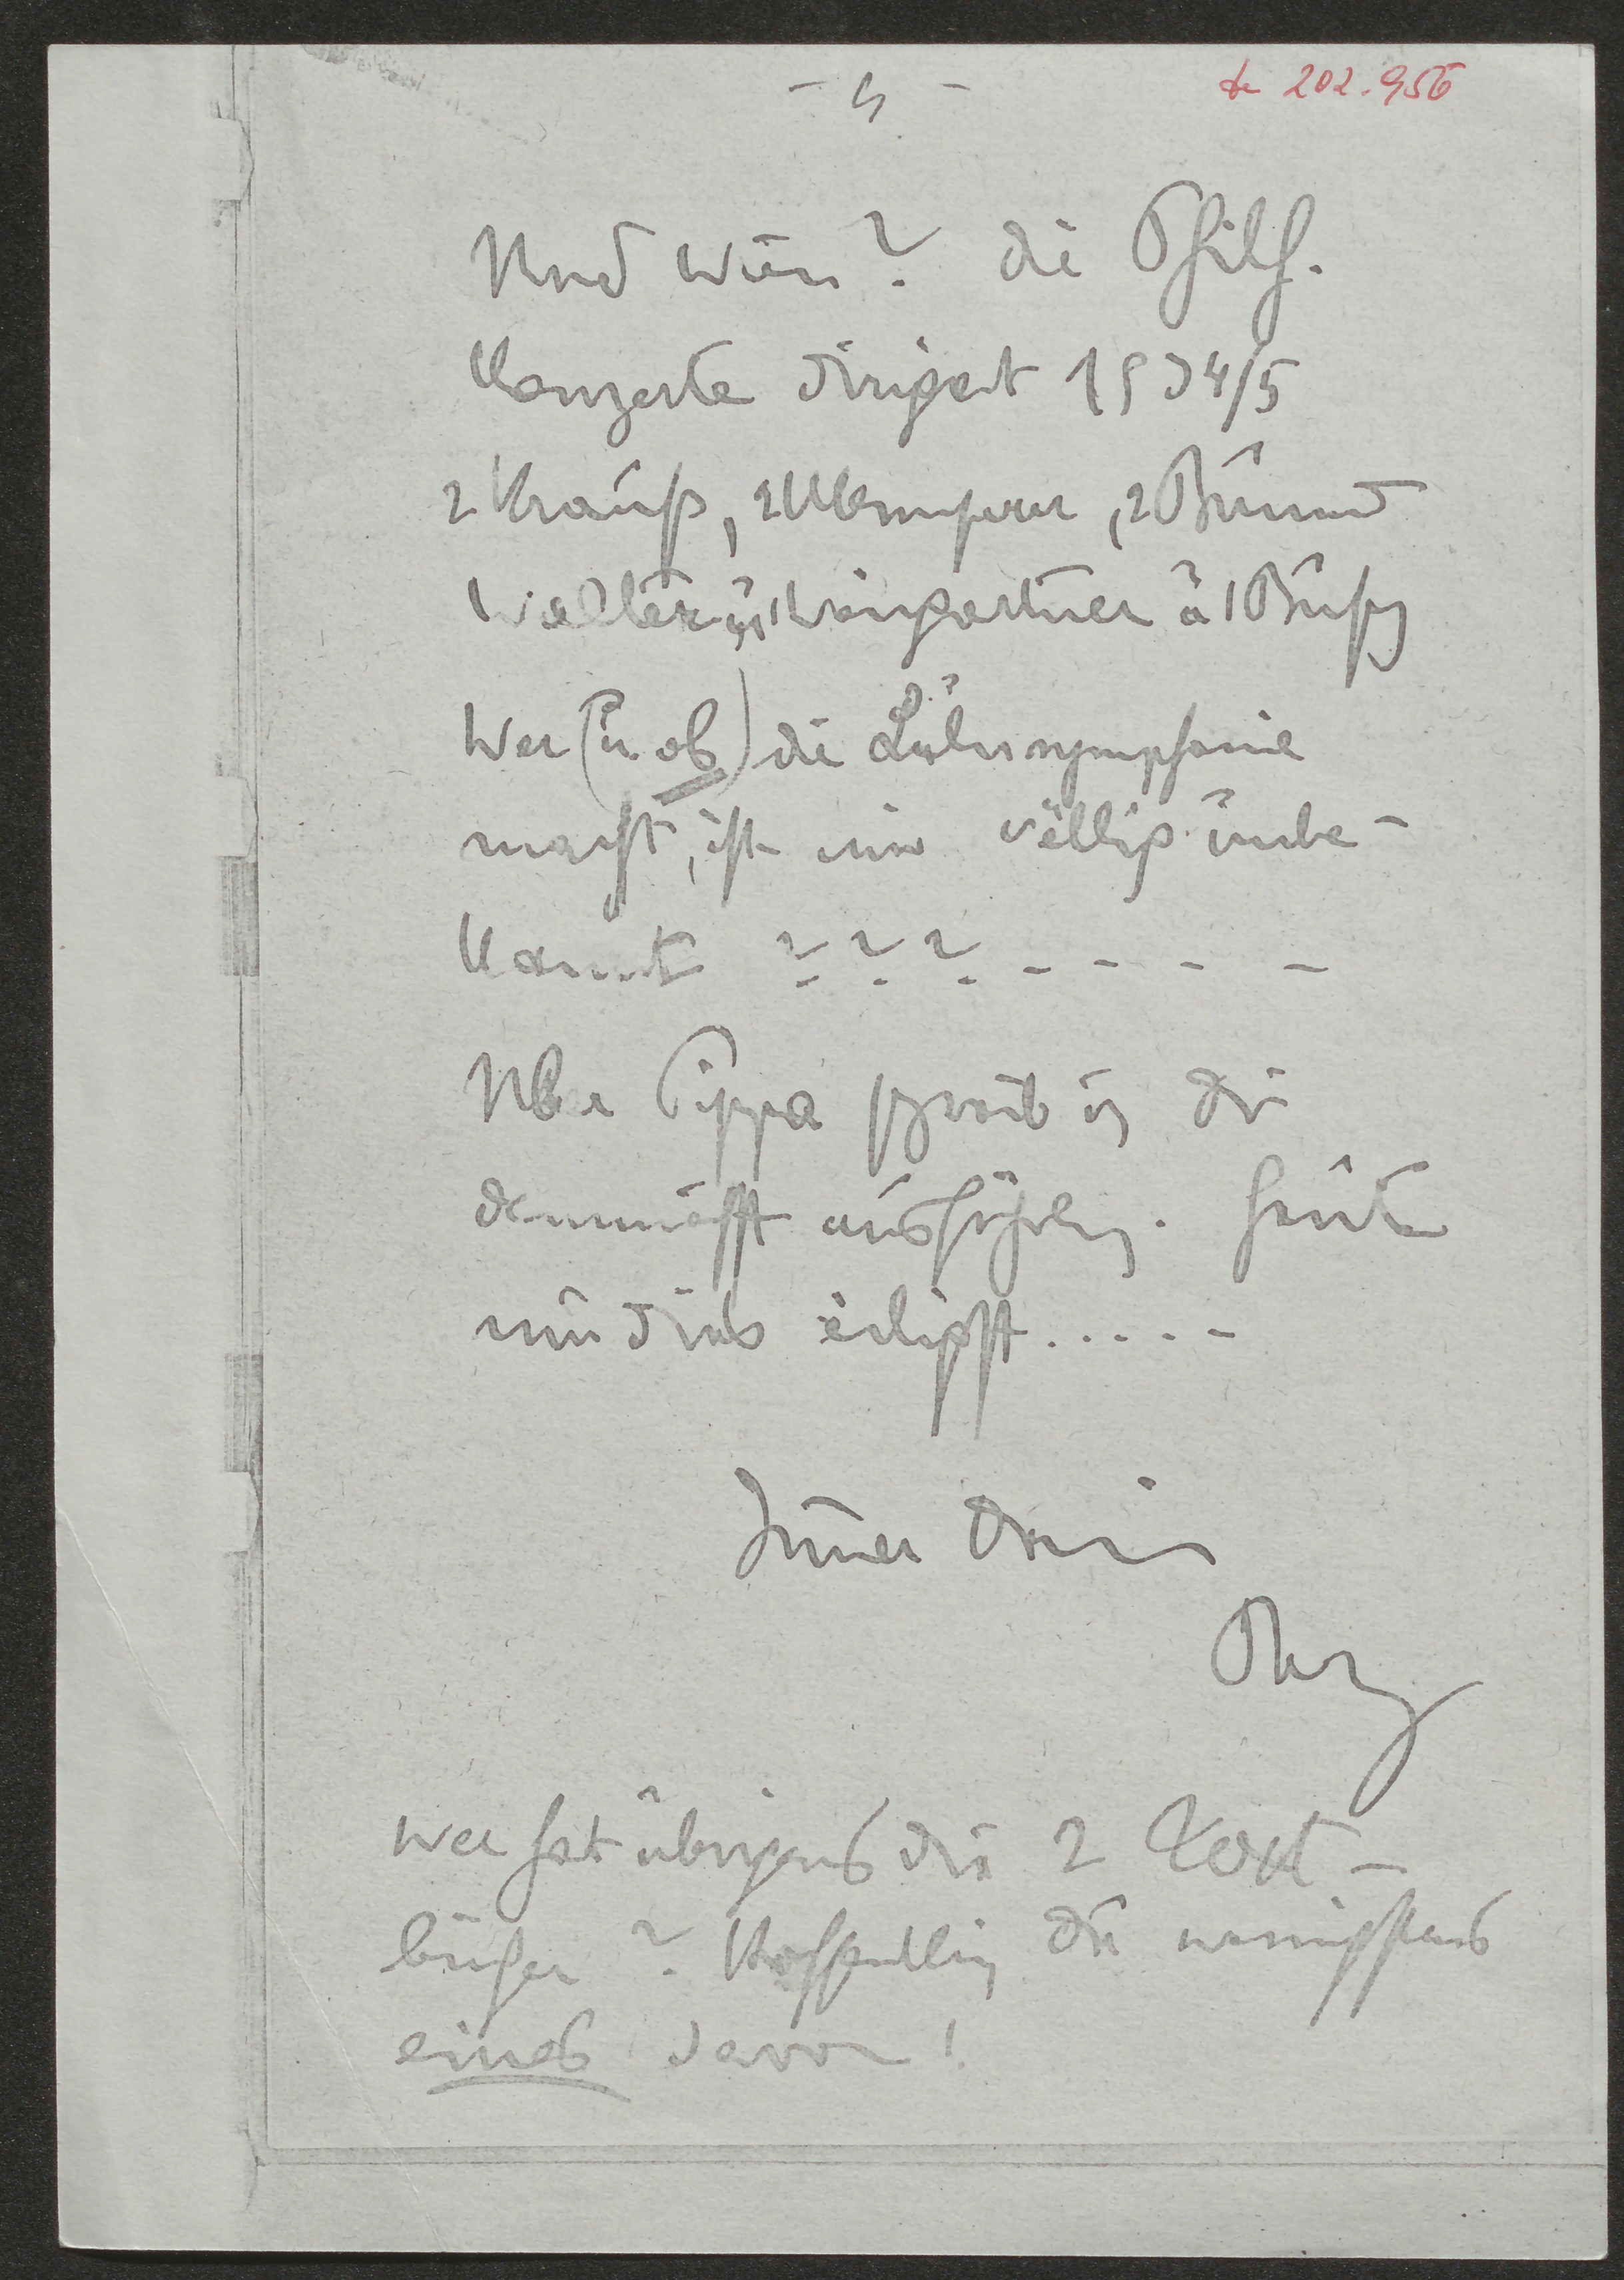 - 4 -
202.956
Und Wien? Die Philh.
Konzerte dirigiert 1934/5
2 Krauß, 2 Klemperer, 2 Bruno
Walter, 1 Weingartner u 1 Busch
Wer (u ob) die Lulusymphonie
macht, ist mir völlig unbe-
kannt ? ? ? - - - -
Über Pippa schreib ich Dir
demnächst ausführlich. Heute
nur dies eiligst.....
Immer Dein
Wer hat übrigens die 2 Text-
bücher? Hoffentlich Du wenigstens
eines davon!